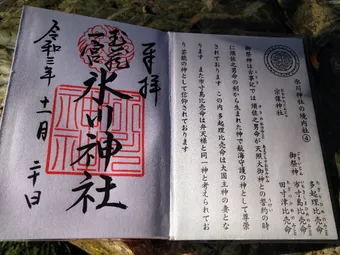 氷川神社の境内社④
宗像神社
御祭神
多起理比売命
市寸島比売命
田寸津比売命
御祭神は古事記では須佐之男命が天照大御神との誓約の時
に須佐之男命の剣から生まれた神で航海守護の神として尊崇
されております この内多起理比売命は大国主神の妻とな
ります また市寸島比売命は弁天様と同一神と考えられてお
り芸能の神として信仰されております
奉拝
武蔵
一宮
氷川神社
令和三年十一月二十日